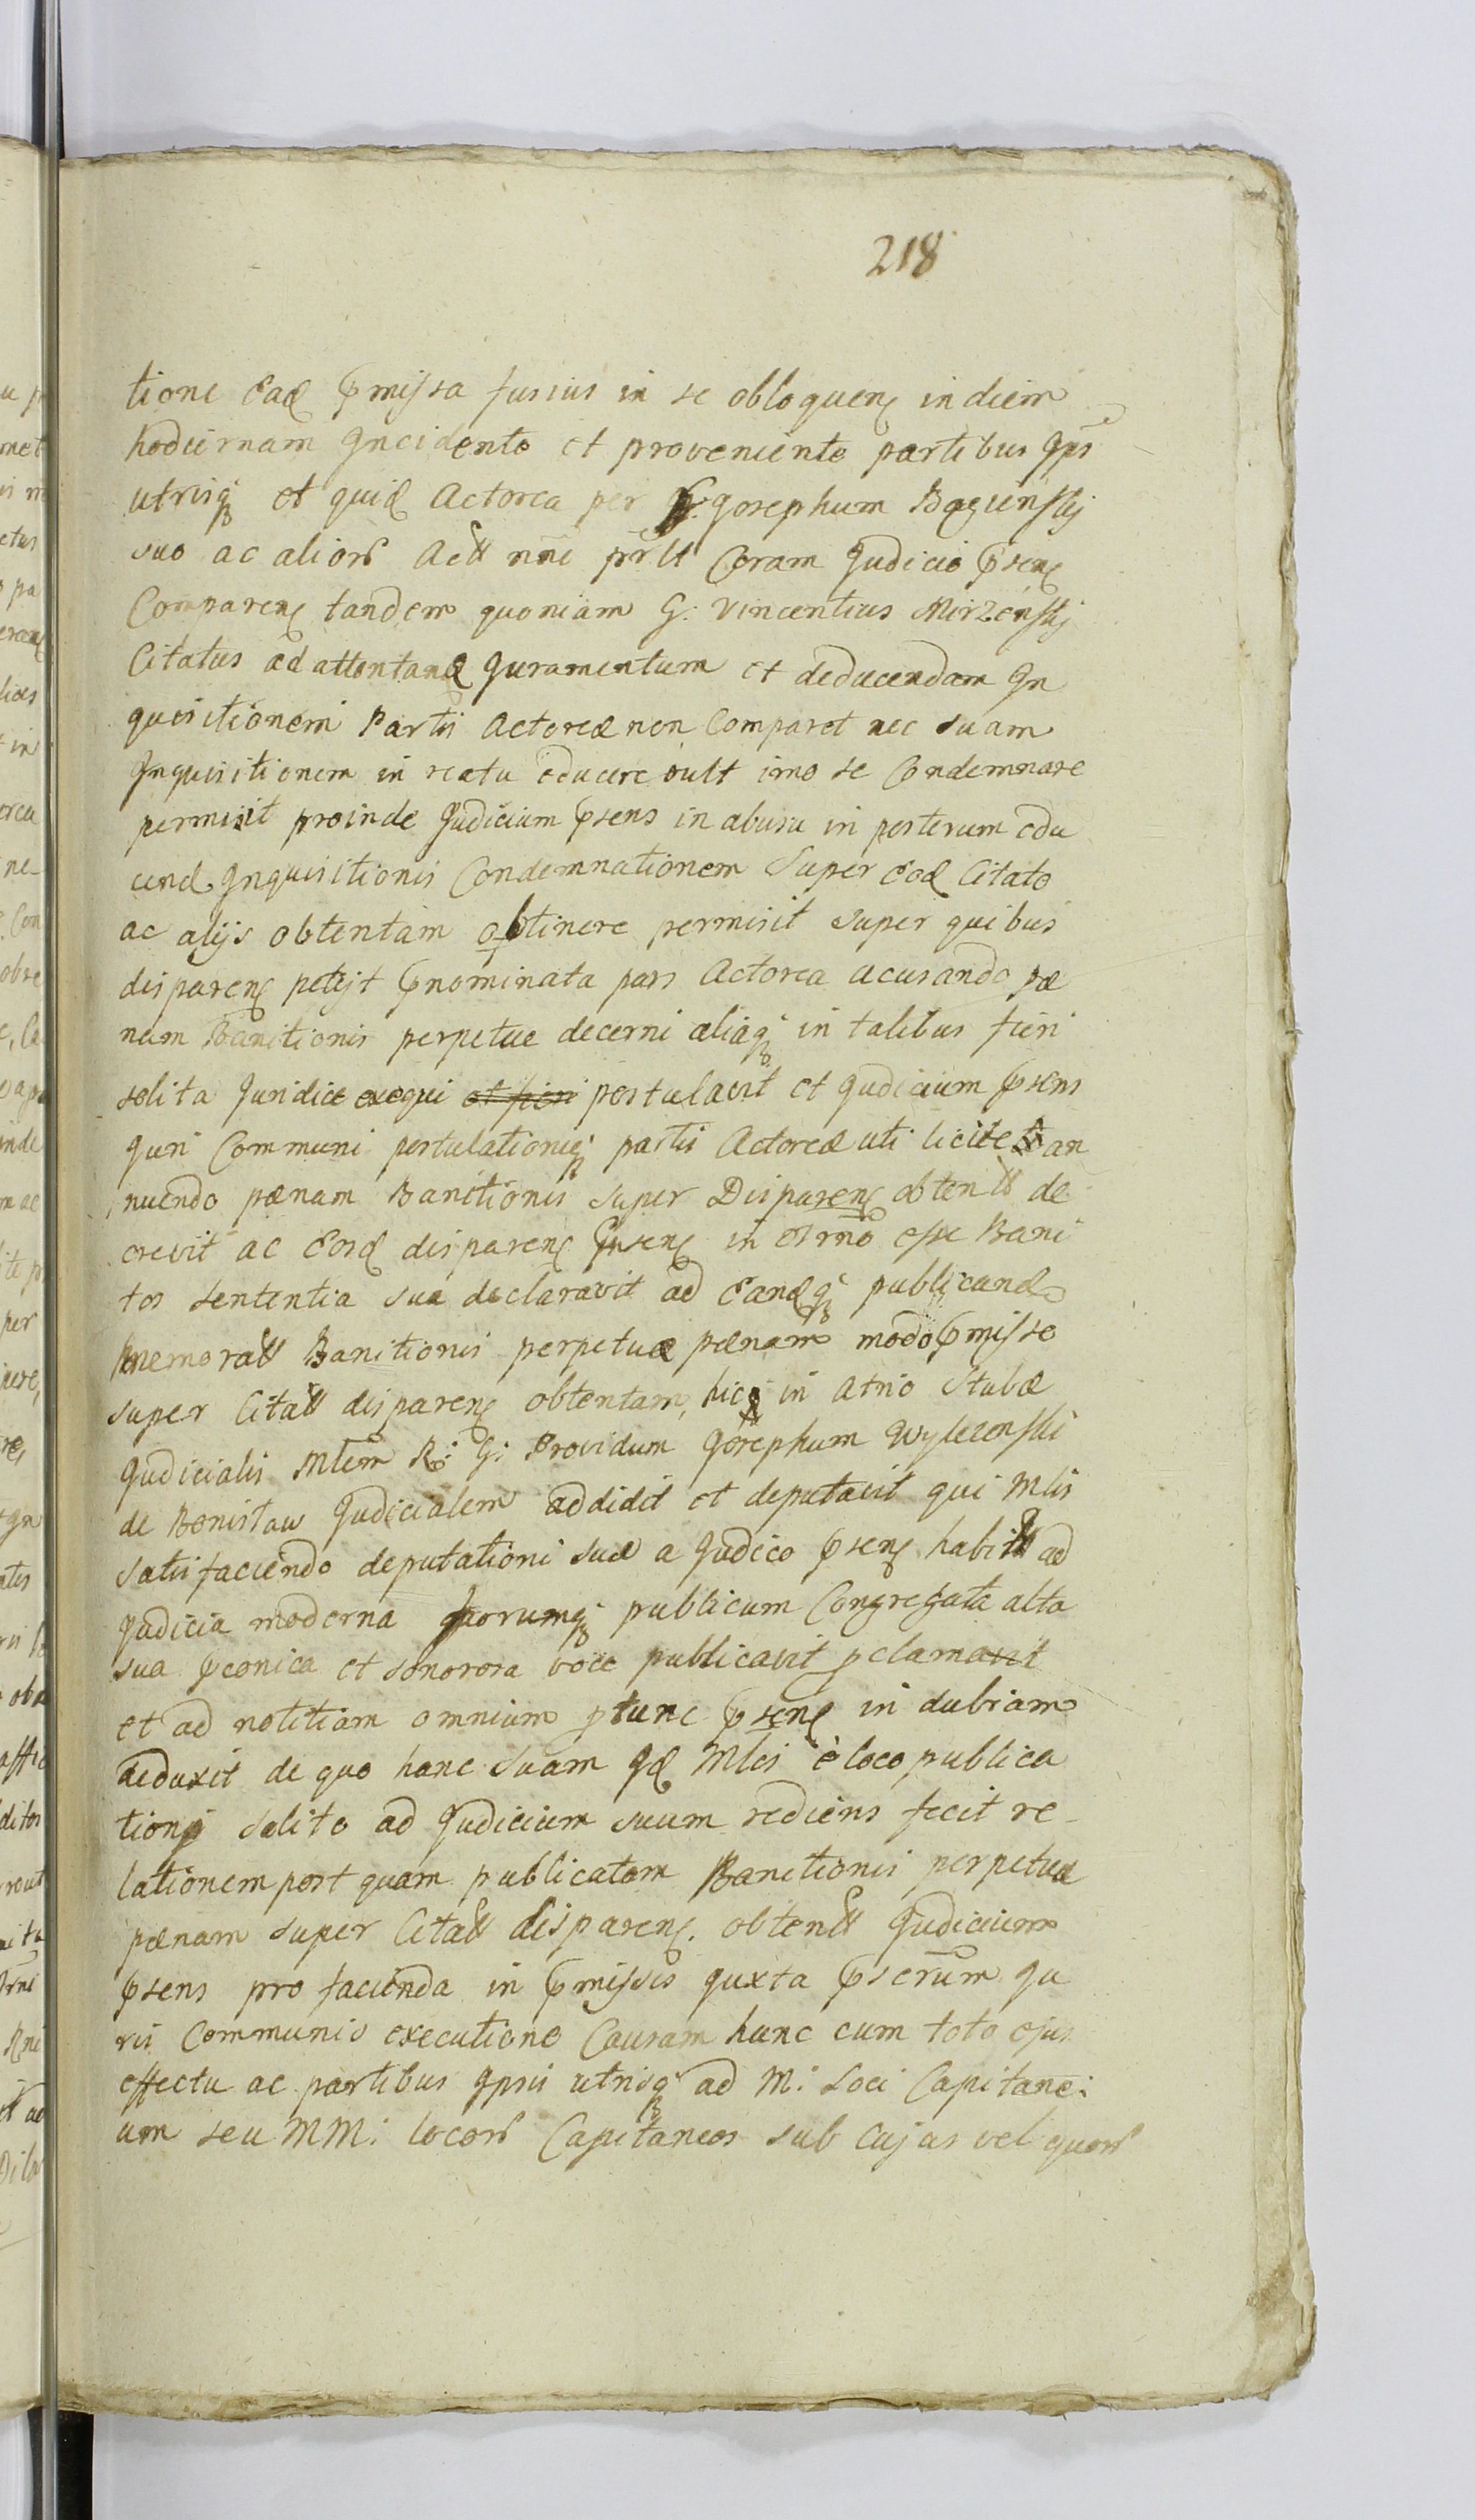 218
tione Ead pmissa fusius in se obloquen in diem
hodiernam Incidente et proveniente partibus Ipis
utrisq et quid Actorea per G: Josephum Bogunskj
suo ac alior Actt nne prlt Coram Judicio psen
Comparen tandem quoniam G: Vincentius Mirzenskj
Citatus ad attentand Juramentum et deducendam In
quisitionem Partis Actoreæ non Comparet nec suam
Inquisitionem in reatu educere vult imo se Condemnare
permisit proinde Judicium psens in abusu in posterum edu
cend Inquisitionis Condemnationem Super Eod Citato
ac alijs obtentam obtinere permisit super quibus
disparen petijt pnominata pars Actorea acusando pæ
nam Banitionis perpetuæ decerni aliaq in talibus fieri
solita Juridice exequi et fieri postulavit et Judicium psens
Juri Communi postulationiq partis Actoreæ uti licitæ an
nuendo pænam Banitionis super Disparen obtentt de
crevit ac Eosd disparen psen in esse Bani
tos sententia sua declaravit ad Eandq publicand
memoratt Banitionis perpetuæ pænam modo pmisso
super Citatt disparen obtentam, hic in Atrio Stubæ
Judicialis Mlem R: G: Providum Josephum Wylezenski
de Benistaw Judicialem addidit et deputavit qui Mlis
satisfaciendo deputationi suæ a Judico psen habitt ad
Judicia moderna forumq publicum Congregata alta
sua pconica et sonorosa voce publicavit pclamavit
et ad notitiam omnium ptunc psen in dubiam
deduxit de quo hanc suam Id Mlis è loco publica
tioni solito ad Judicium suum rediens fecit re-
lationem post quam publicatam Banitionis perpetuæ
pænam super Citatt disparen. obtentt Judicium
psens pro facienda in pmissis Juxta pscrum Ju
ris Communis executione Causam hanc cum toto ejus
effectu ac partibus Ipsis utrisq ad M: Loci Capitane:
um seu MM: locor Capitaneos sub cujus vel quor